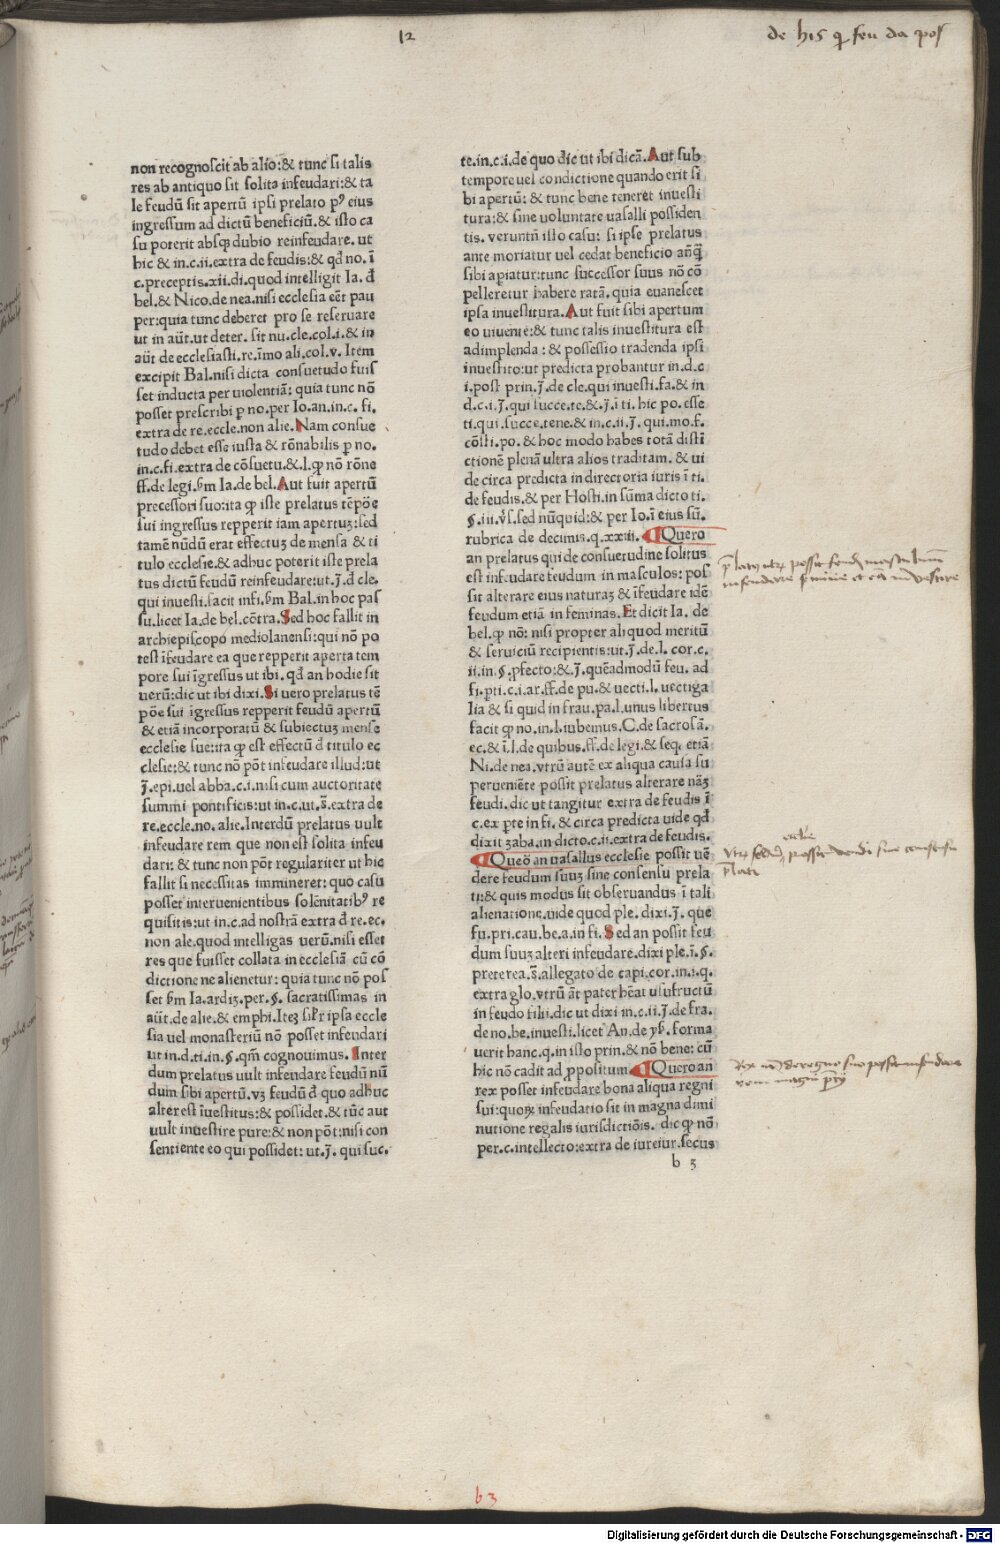 12
de his q̄ feu da pos
non recognoscit ab alio:& tunc si talis
res ab antiquo sit solita infeudari:& ta
le feudū sit apertū ipsi prelato pꝰ eius
ingressum ad dictū beneficiū.& isto ca
su poterit absqꝫ dubio reinfeudare. ut
hic & in.c.ii.extra de feudis:& qđ no. ī
c.preceptis.xii.di.quod intelligit Ia. đ
bel.& Nico.de nea.nisi ecclesia eēt pau
per:quia tunc deberet pro se reseruare
ut in aūt.ut deter. sit nu.cle.col.i.& in
aūt de ecclesiasti.re.īmo ali.col.v. Item
excipit Bal.nisi dicta consuetudo fuis
set inducta per uiolentiā: quia tunc nō
posset prescribi ꝑ no.per Io.an.in.c. fi.
extra de re.eccle.non alie.Nam consue
tudo debet esse iusta & rōnabilis ꝑ no.
in.c.fi.extra de cōsuetu.&.l.ꝙ nō rōne
ff.de legi.ẜm Ia.de bel.Aut fuit apertū
precessori suo:ita ꝙ iste prelatus tēpōe
sui ingressus repperit iam apertuꝫ:sed
tamē nūdū erat effectuꝫ de mensa & ti
tulo ecclesie.& adhuc poterit iste prela
tus dictū feudū reinfeudare:ut.J.đ cle.
qui inuesti.facit infi.ẜm Bal.in hoc pas
su.licet Ia.de bel.cōtra.Sed hoc fallit in
archiepiscopo mediolanensi:qui nō po
test īfeudare ea que repperit aperta tem
pore sui īgressus ut ibi. qđ an hodie sit
uerū:dic ut ibi dixi.Si uero prelatus tē
pōe sui īgressus repperit feudū apertū
& etiā incorporatū & subiectuꝫ mense
ecclesie sue:ita ꝙ est effectū đ titulo ec
clesie:& tunc nō pōt infeudare illud:ut
J.epi.uel abba.c.i.nisi cum auctoritate
summi pontificis:ut in.c.ut.s̄.extra de
re.eccle.no. alie.Interdū prelatus uult
infeudare rem que non est solita infeu
dari: & tunc non pōt regulariter ut hic
fallit si necessitas immineret: quo casu
posset interuenientibus solēnitatibꝰ re
quisitis:ut in.c.ad nostrā extra đ re.ec.
non ale.quod intelligas uerū.nisi esset
res que fuisset collata in ecclesiā cū cō
dictione ne alienetur: quia tunc nō pos
set ẜm Ia.ardiꝫ.per.§. sacratissimas in
aūt.de alie.& emphi.Iteꝫ sup̄r ipsa eccle
sia uel monasteriū nō posset infeudari
ut in.d.ti.in.§.qm̄ cognouimus. Inter
dum prelatus uult infeudare feudū nū
dum sibi apertū.vꝫ feudū đ quo adhuc
alter est īuestitus:& possidet.& tūc aut
uult inuestire pure:& non pōt:nisi con
sentiente eo qui possidet: ut.J. qui suc.
te.in.c.i.de quo dic̄ ut ibi dicā.Aut sub
tempore uel condictione quando erit si
bi apertū: & tunc bene teneret inuesti
tura:& sine uoluntate uasalli possiden
tis. ueruntn̄ isto casu: si ipse prelatus
ante moriatur uel cedat beneficio anq̄
sibi apiatur:tunc successor suus nō cō
pelleretur habere ratā. quia euanescet
ipsa inuestitura.Aut fuit sibi apertum
eo uiuente:& tunc talis inuestitura est
adimplenda : & possessio tradenda ipsi
inuestito:ut predicta probantur in.d.c
i.post prin.J.de cle.qui inuesti.fa.& in
d.c.i.J.qui succe.te.&.J.ī ti. hic po. esse
ti.qui.succe.tene.& in.c.ii.J. qui.mo.f.
cōsti.po.& hoc modo habes totā disti
ctionē plenā ultra alios traditam. & ui
de circa predicta in directoria iuris ī ti.
de feudis.& per Hosti.in sūma dicto ti.
§.iii.v̄s.sed nūquid:& per Io.ī eius sū.
rubrica de decimis.q.xxiii. Quero
an prelatus qui de consuetudine solitus
est infeudare feudum in masculos: pos
sit alterare eius naturaꝫ & īfeudare idē
feudum etiā in feminas. Et dicit Ia. de
bel.ꝙ nō: nisi propter aliquod meritū
& seruiciū recipientis:ut.J.de.l. cor.c.
ii.in.§.ꝓfecto:&.J.quēadmodū feu. ad
fi.pti.c.i.ar.ff.de pu.& uecti.l. uectiga
lia & si quid in frau.pa.l.unus libertus
facit ꝙ no.in.l.iubemus.C.de sacrosā.
ec.& ī.l.de quibus.ff.de legi.& seq. etiā
Ni.de nea.vtrū autē ex aliqua causa su
perueniēte possit prelatus alterare nāꝫ
feudi.dic ut tangitur extra de feudis ī
c.ex ꝑte in fi. & circa predicta uide qđ
dixit ꝫaba.in dicto.c.ii.extra de feudis.
Queō an uasallus ecclesie possit uē
dere feudum suuꝫ sine consensu prela
ti:& quis modus sit obseruandus ī tali
alienatione.uide quod ple. dixi.J. que
fu.pri.cau.be.a.in fi. Sed an possit feu
dum suuꝫ alteri infeudare.dixi ple.ī.§.
preterea.s̄.allegato de capi.cor.in.i.q.
extra glo.vtrū āt pater hēat usufructū
in feudo filii.dic ut dixi in.c.ii.J.de fra.
de no.be.inuesti.licet An.de yẜ. forma
uerit hanc.q.in isto prin.& nō bene: cū
hic nō cadit ad ꝓpositum Quero an
rex posset infeudare bona aliqua regni
sui:quoꝝ infeudatio sit in magna dimi
nutione regalis iurisdictiōis. dic ꝙ nō
per.c.intellecto:extra de iureiur.secus
b 3
b 3
Digitalisierung gefördert durch die Deutsche Forschungsgemeinschaft - DFG